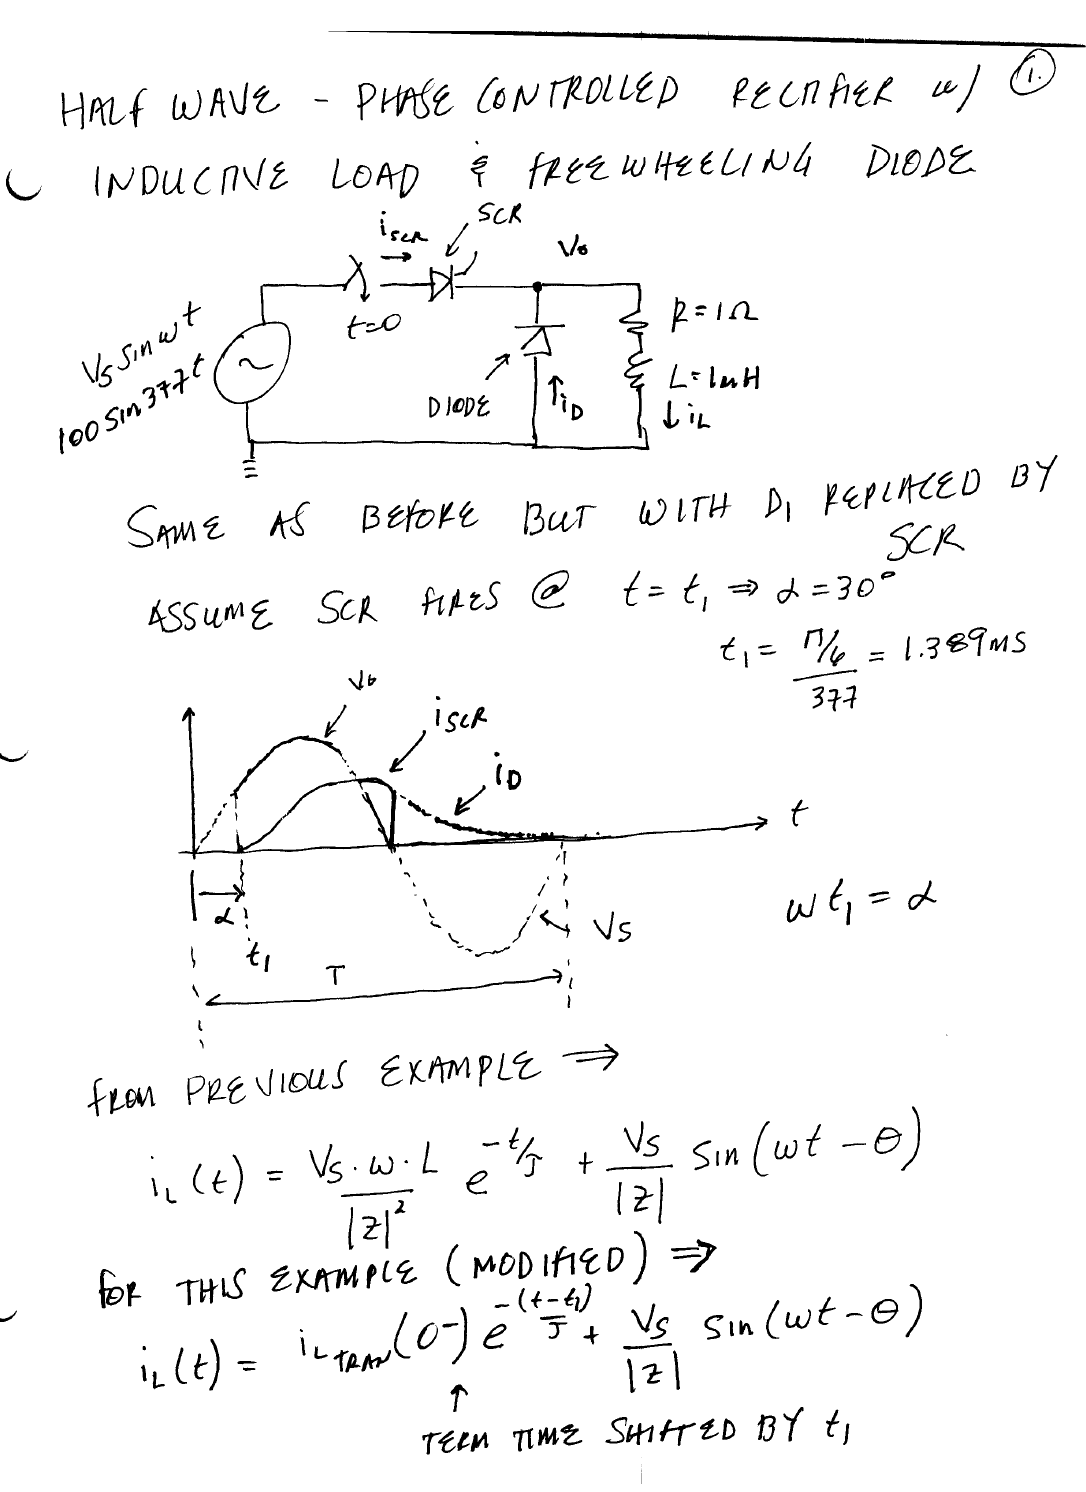 HALF WAVE - PHASE CONTROLLED RECTIFIER w/ 1.
INDUCTIVE LOAD & FREEWHEELING DIODE
iSCR
SCR
Vo
t=0
Vs Sin wt
100 Sin 377t
R=1Ω
L=1mH
DIODE
↑iD
↓iL
SAME AS BEFORE BUT WITH D1 REPLACED BY
SCR
ASSUME SCR FIRES @ t = t1 ⇒ α = 30°
t1 = π/6 / 377 = 1.389 MS
Vo
iSCR
iD
t
α
t1
T
Vs
wt1 = α
FROM PREVIOUS EXAMPLE ⇒
iL(t) = Vs·w·L / |Z|² e^(-t/J) + Vs / |Z| Sin(wt - θ)
FOR THIS EXAMPLE (MODIFIED) ⇒
iL(t) = iL TRAN(0-) e^(-(t-t1)/J) + Vs / |Z| Sin(wt-θ)
↑
TERM TIME SHIFTED BY t1